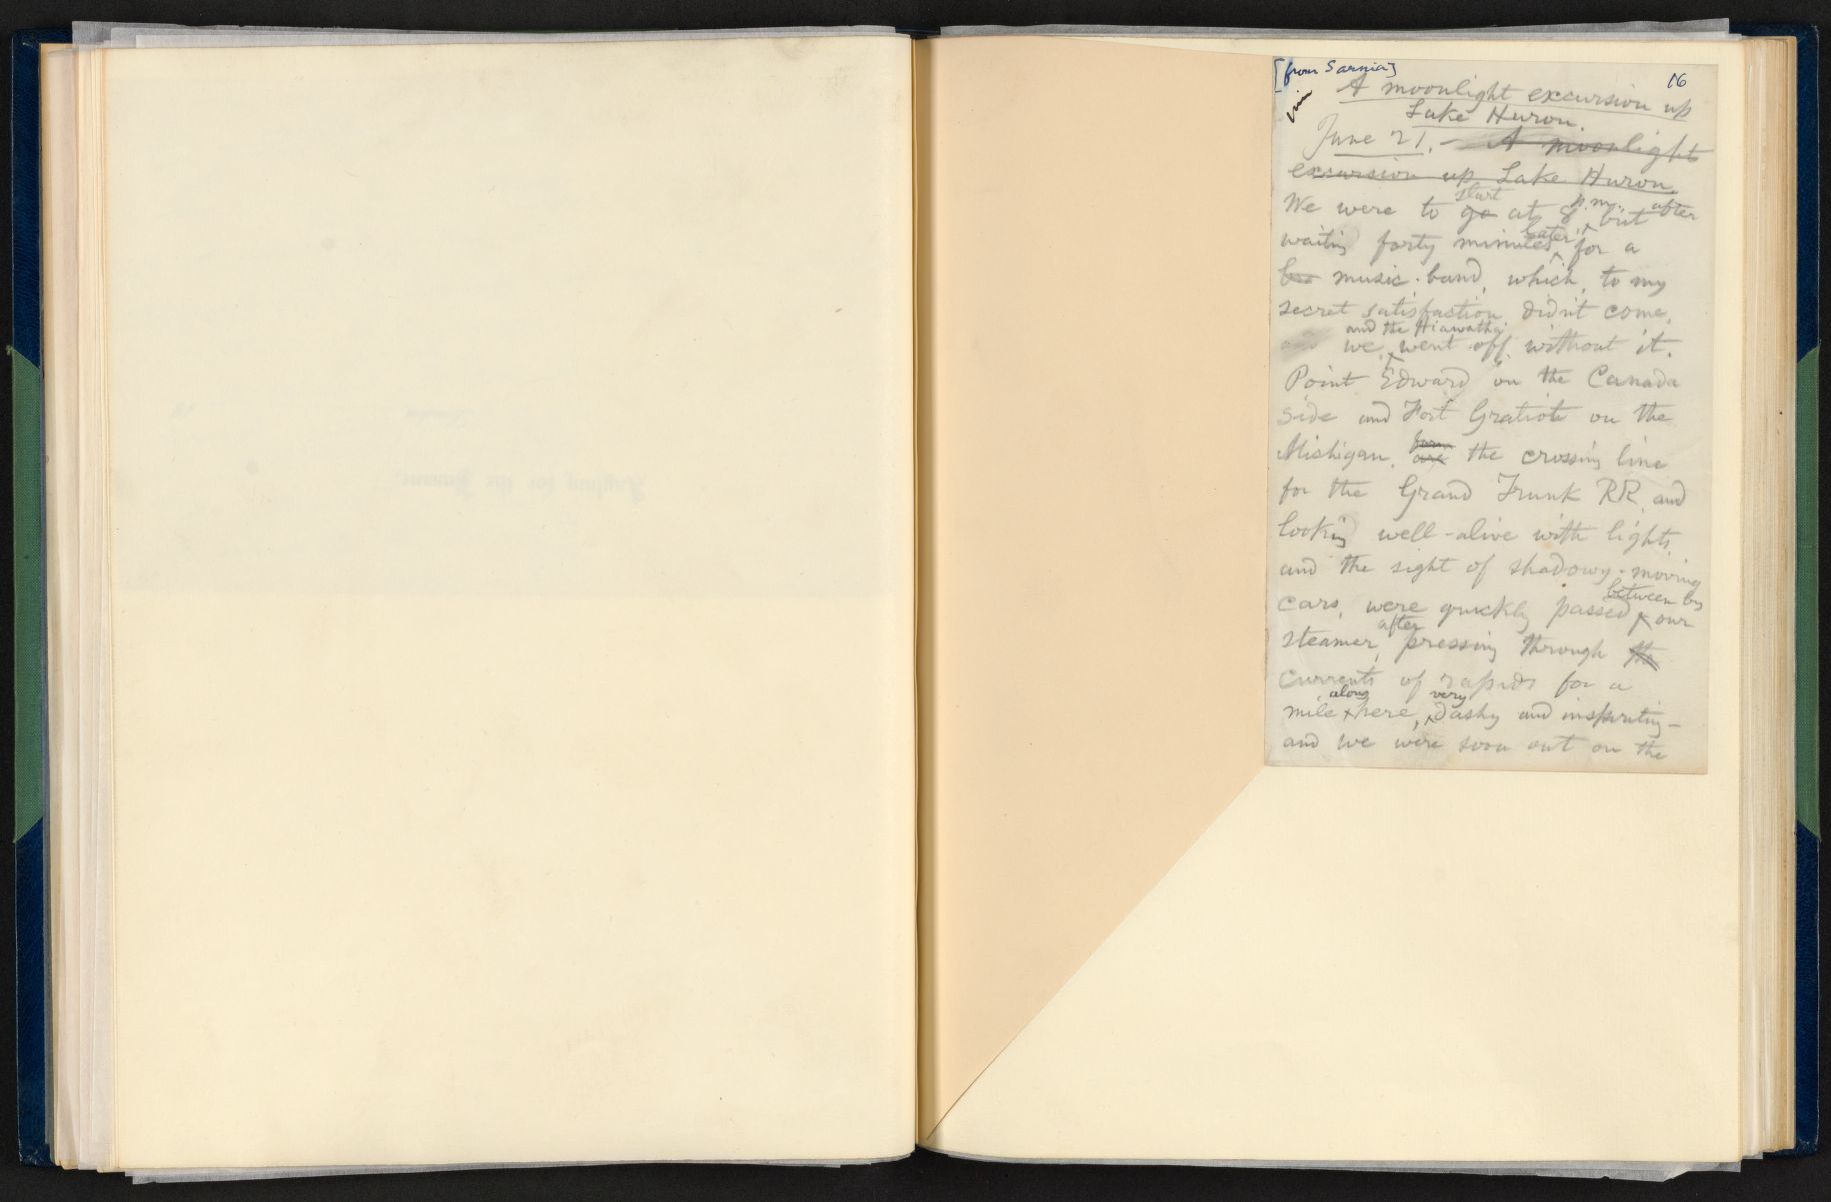 [from Sarnia]
16
A moonlight excursion up
Lake Huron.
June 21. – A moonlight
excursion up Lake Huron.
start p.m., after
We were to go at 8, but
later
waiting forty minutes for a
bra music-band, which, to my
secret satisfaction, didn't come,
and the Hiawatha
we, went off without it.
Point Edward on the Canada
side and Fort Gratiot on the
Mishigan, the crossing line
for the Grand Trunk RR, and
looking well-alive with lights
and the sight of shadowy-moving
between by
cars, were quickly passed our
after
steamer, pressing through the
currents of rapids for a
, along very
mile here, dashy and inspiriting –
and we were soon out on the